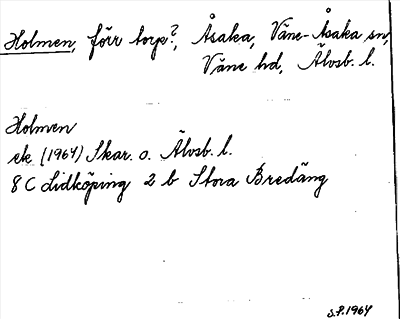 Holmen, förr torp?, Åsaka, Väne-Åsaka sn,
Väne hd, Älvsb. l.
Holmen
ek. (1964) Skar. o. Älvsb. l.
8 C Lidköping 2 b Stora Bredäng
S.P. 1964